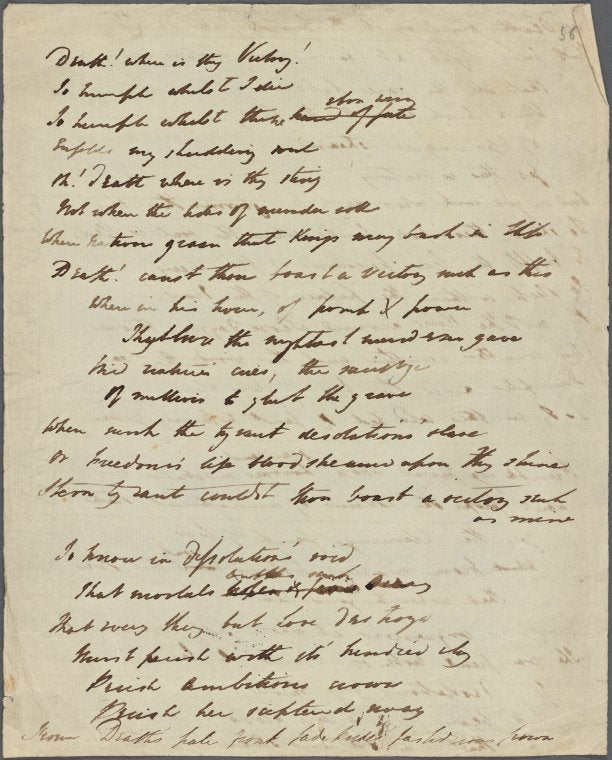 36
Death! where is thy Victory!
To triumph whilst I die
To triumph whilst thine ebon wing
hand of fate
Enfolds my shuddering soul
Oh! Death where is thy sting
Not when the tides of murder roll
When nations groan that Kings may bask in bliss
Death! canst thou boast a victory such as this
When in his hour of pomb & power
Thy blow the mightiest murderer gave
Mid natures cries, the sacrifize
Of millions to glut the grave
When sunk the tyrant desolations slave
Or Freedom's life blood streamed upon thy shrine
Stern tyrant couldst thou boast a victory such
as mine
To know in dissolution's void
That mortals bubbles sunk decay
That every thing but love destroyd
Must perish with its kindred clay
Perish ambitions crown
Perish her sceptered sway
From Death's pale front fade prides fastidious frown